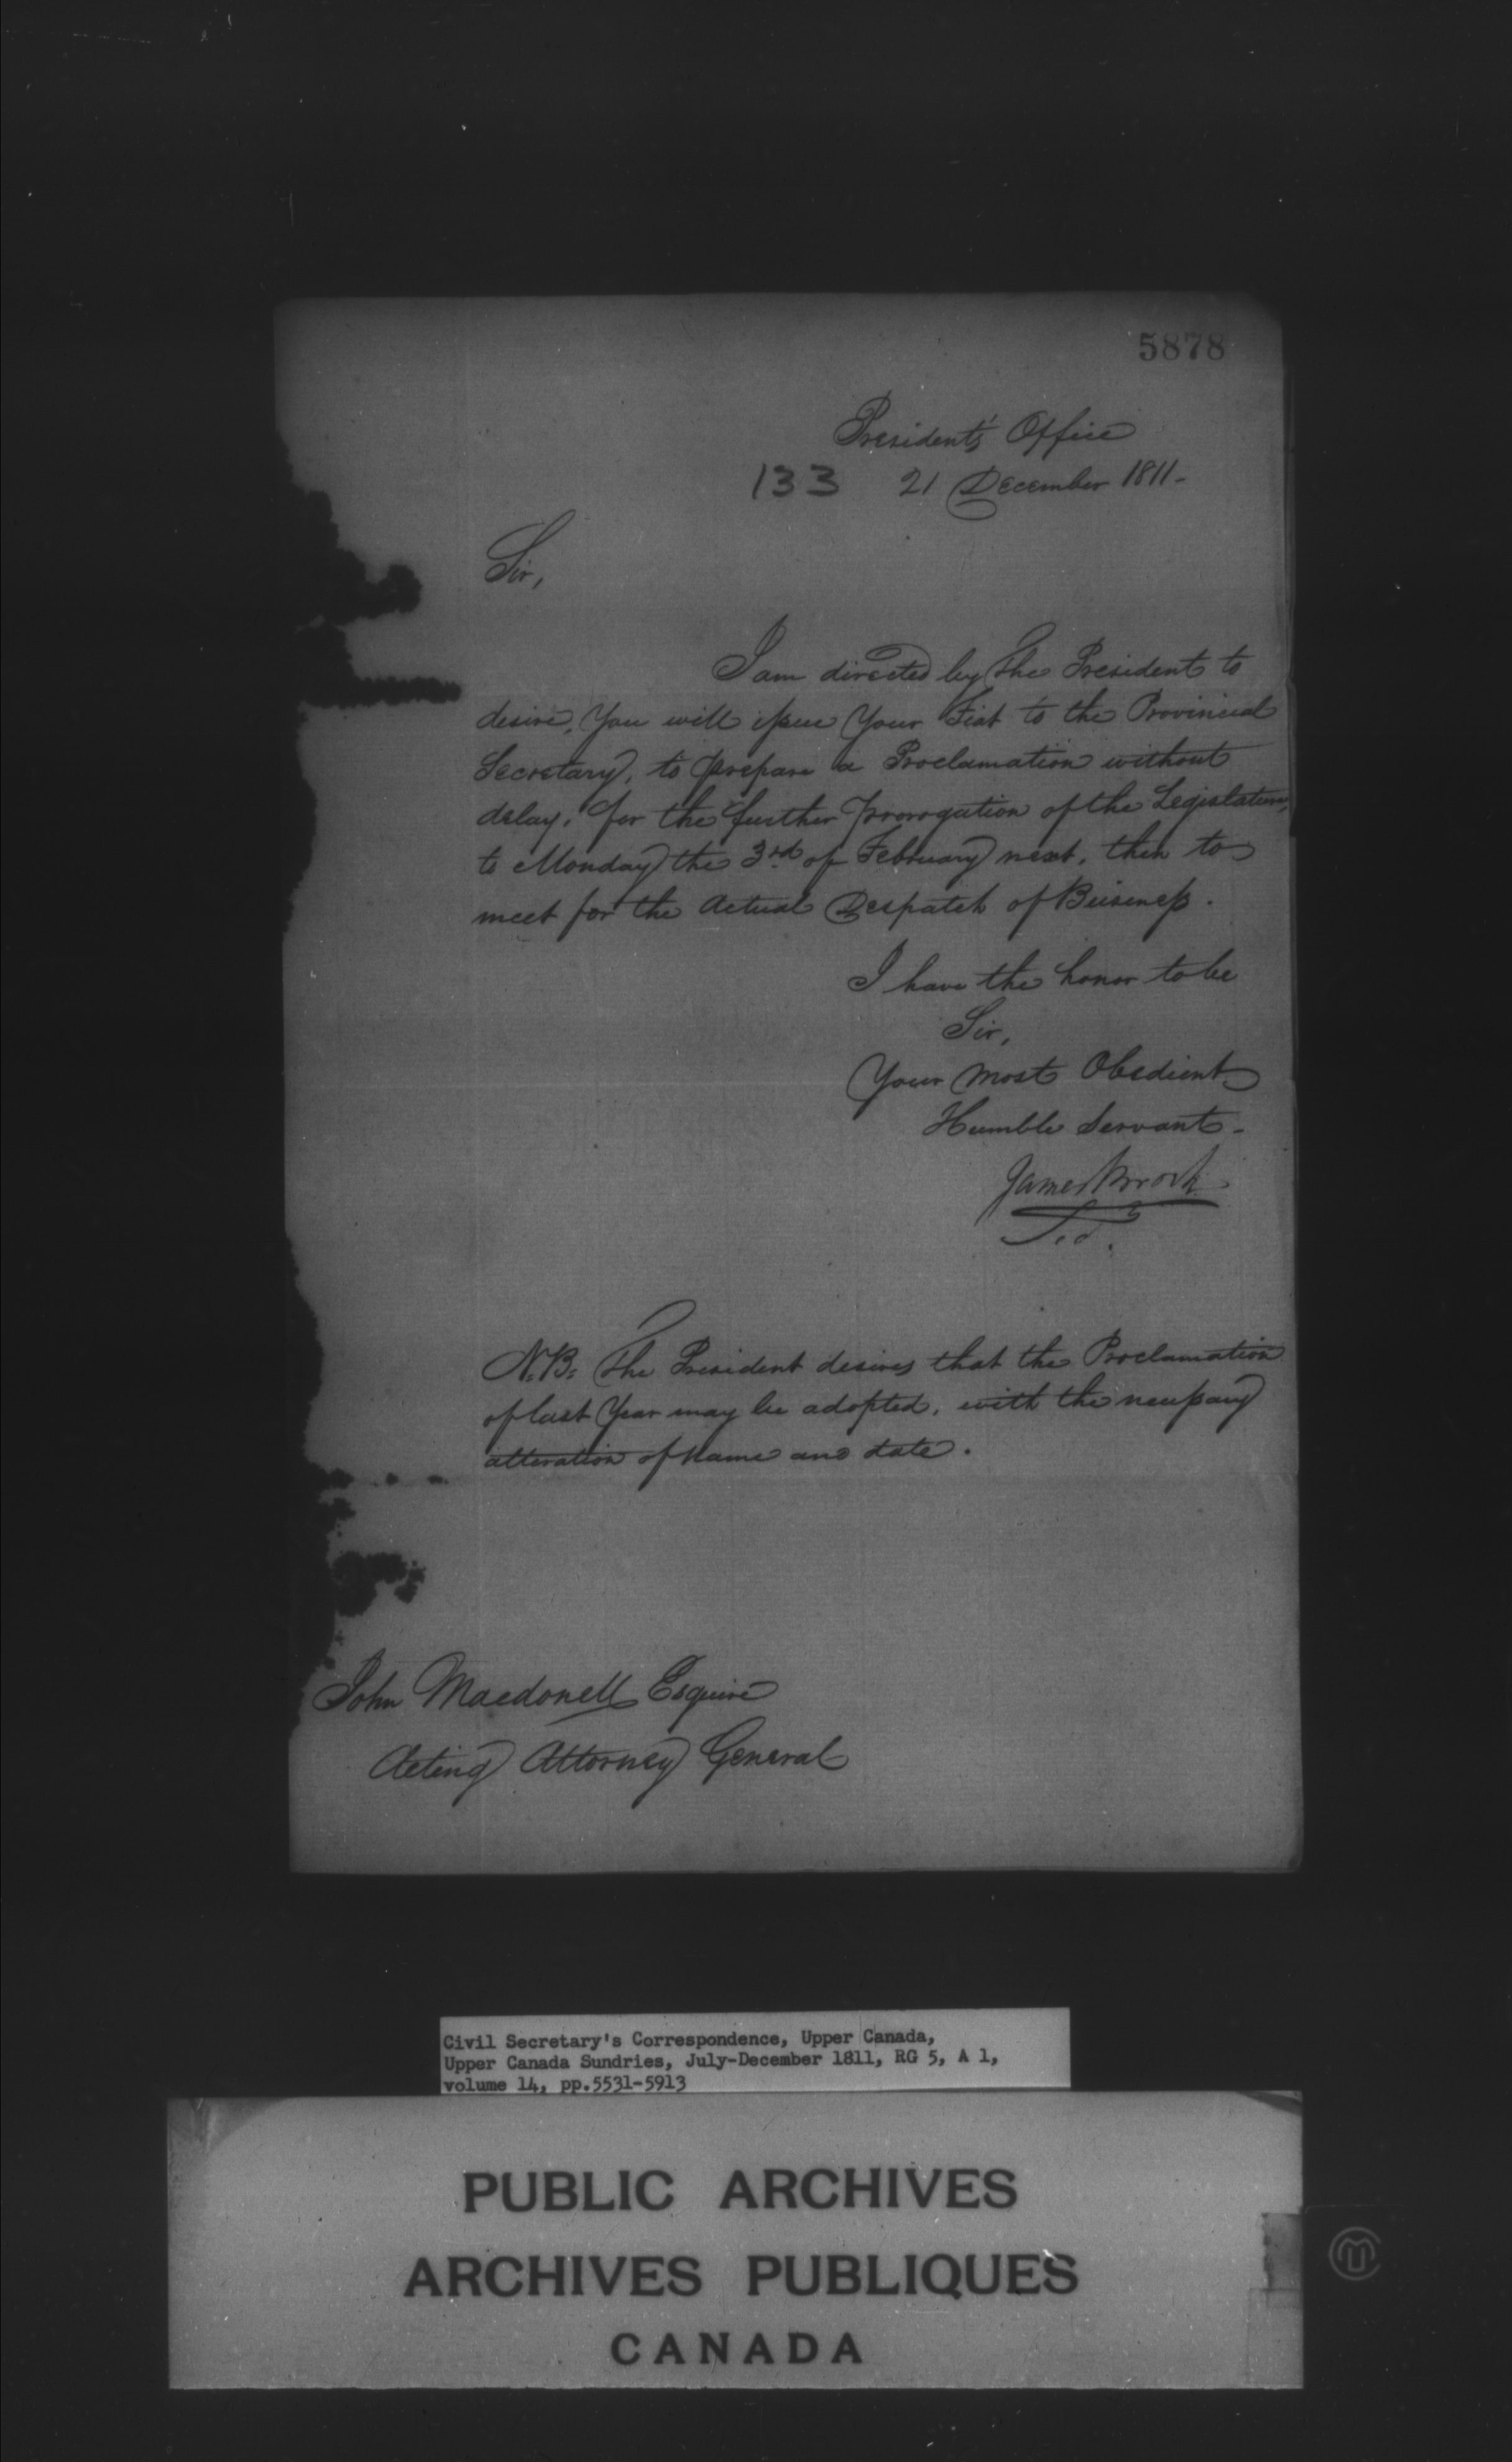 5878
President's Office
133 21 December 1811-
Sir,
I am directed by The President to
desire, You will issue Your Fiat to the Provincial
Secretary, to prepare a Proclamation without
delay, for the further prorogation of the Legislature,
to Monday the 3rd of February next, then to
meet for the Actual Despatch of Business.
I have the honor to be
Sir,
Your Most Obedient
Humble Servant-
James Brock
Sec.
N.B. The President desires that the Proclamation
of last Year may be adopted, with the necessary
alteration of Name and date.
John Macdonell Esquire
Acting Attorney General
Civil Secretary's Correspondence, Upper Canada,
Upper Canada Sundries, July-December 1811, RG 5, A 1,
volume 14, pp.5531-5913
PUBLIC ARCHIVES
ARCHIVES PUBLIQUES
CANADA